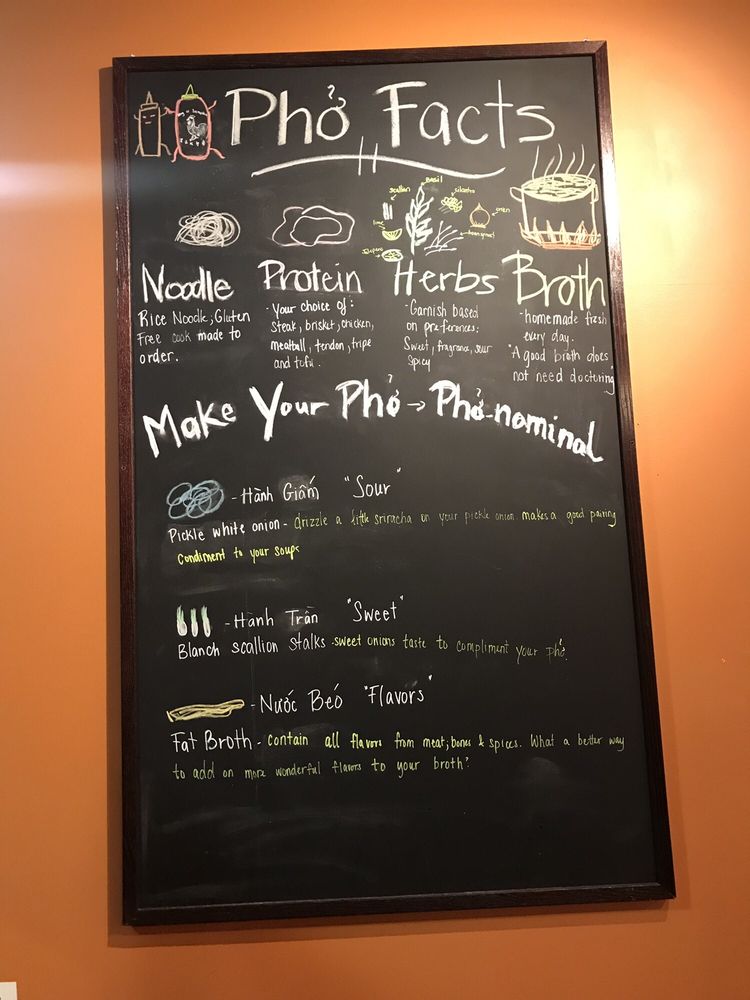 Phở Facts
scallion
basil
cilantro
lime
onion
beansprout
Jalapeno
Noodle
Rice Noodle, Gluten
Free cook made to
order.
Protein
- Your choice of:
Steak, brisket, chicken,
meatball, tendon, tripe
and tofu.
Herbs
- Garnish based
on preferences:
Sweet, fragrance, sour
Spicy
Broth
- homemade fresh
every day.
"A good broth does
not need doctoring
Make Your Phở → Phở-nominal
- Hành Giấm "Sour"
Pickle white onion - drizzle a little sriracha on your pickle onion. makes a good pairing
condiment to your soups
- Hành Trần "Sweet"
Blanch scallion stalks - sweet onions taste to compliment your phở.
- Nước Beó "Flavors"
Fat Broth - contain all flavors from meat, bones & spices. What a better way
to add on more wonderful flavors to your broth?